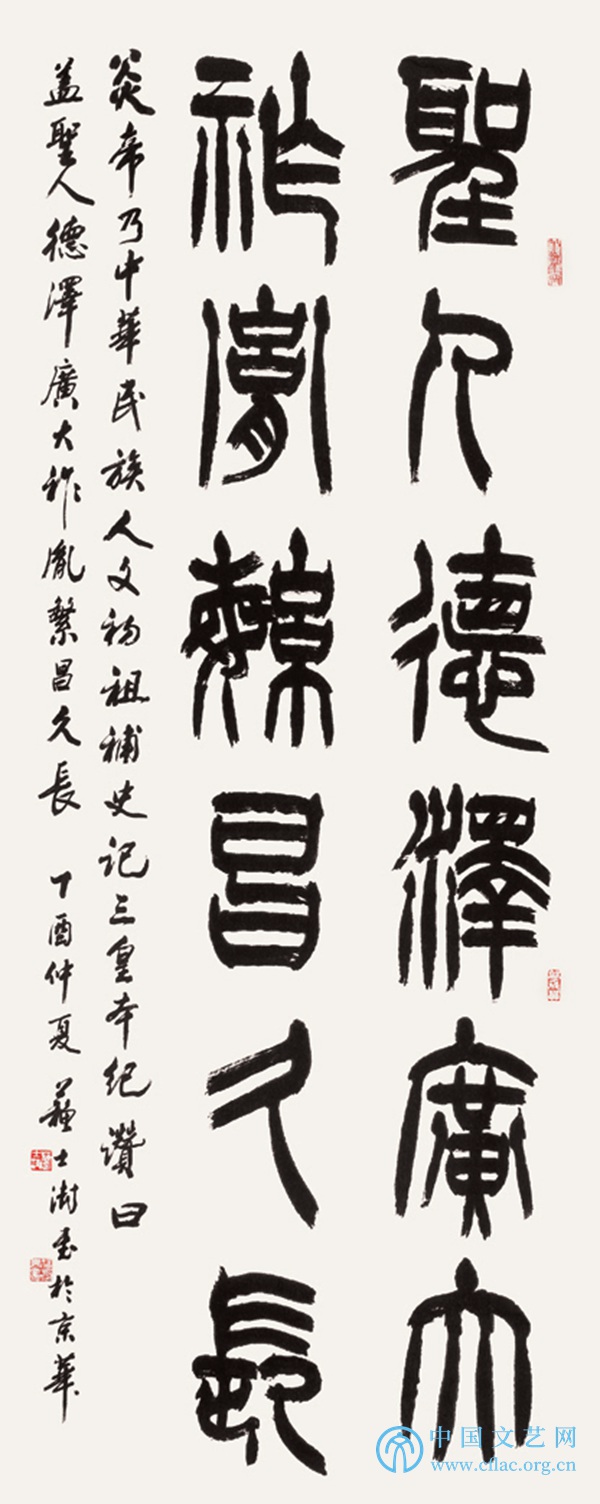 聖人德澤廣大
祚胤繁昌久長
炎帝乃中華民族人文初祖補史记三皇本纪讚曰
盖聖人德澤廣大祚胤繁昌久長 丁酉仲夏 蘇士澍书於京華
中国文艺网
www.cflac.org.cn